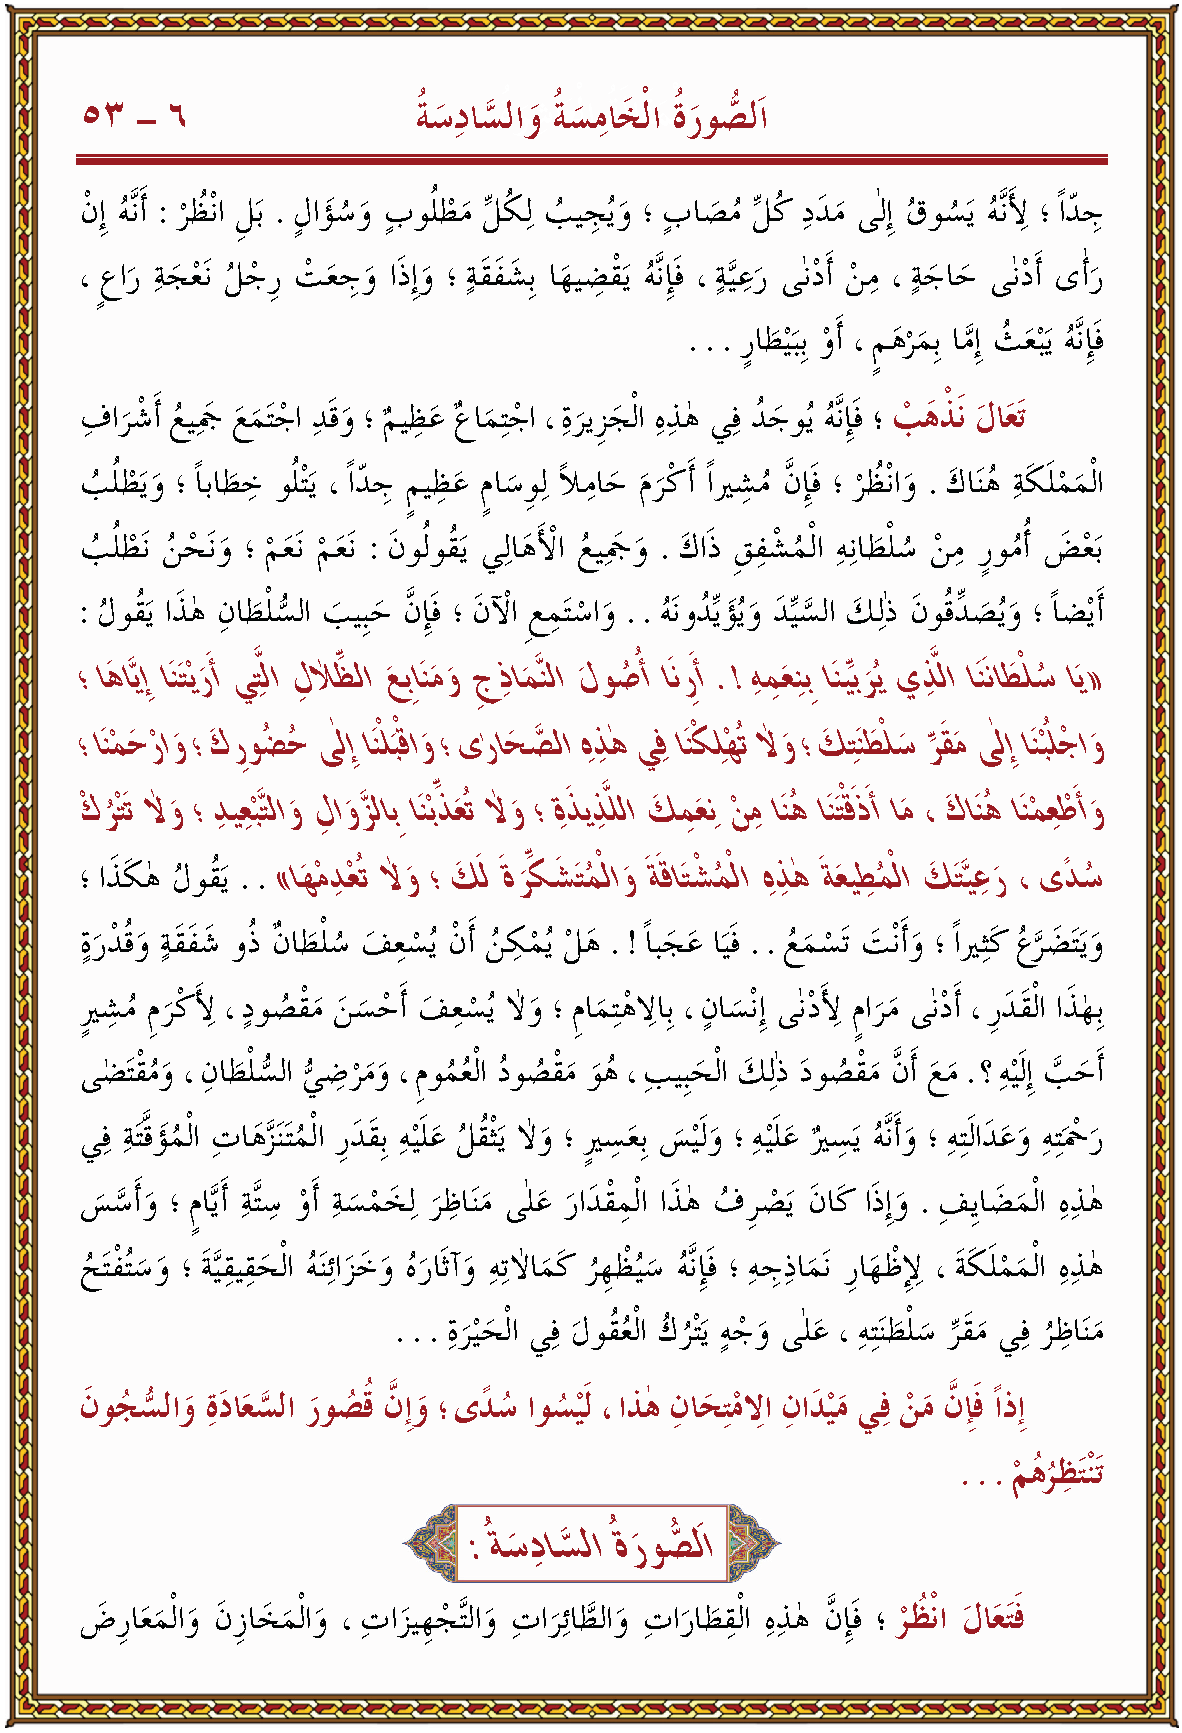 اَلصُّورَةُ الْخَامِسَةُ وَالسَّادِسَةُ ٦ – ٥٣
جِدّاً ؛ لِأَنَّهُ يَسُوقُ إِلٰى مَدَدِ كُلِّ مُصَابٍ ؛ وَيُجِيبُ لِكُلِّ مَطْلُوبٍ وَسُؤَالٍ . بَلِ انْظُرْ : أَنَّهُ إِنْ
رَأٰى أَدْنٰى حَاجَةٍ ، مِنْ أَدْنٰى رَعِيَّةٍ ، فَإِنَّهُ يَقْضِيهَا بِشَفَقَةٍ ؛ وَإِذَا وَجِعَتْ رِجْلُ نَعْجَةِ رَاعٍ ،
فَإِنَّهُ يَبْعَثُ إِمَّا بِمَرْهَمٍ ، أَوْ بِبَيْطَارٍ . . .
تَعَالَ نَذْهَبْ ؛ فَإِنَّهُ يُوجَدُ فِي هٰذِهِ الْجَزِيرَةِ ، اجْتِمَاعٌ عَظِيمٌ ؛ وَقَدِ اجْتَمَعَ جَمِيعُ أَشْرَافِ
الْمَمْلَكَةِ هُنَاكَ . وَانْظُرْ ؛ فَإِنَّ مُشِيراً أَكْرَمَ حَامِلاً لِوِسَامٍ عَظِيمٍ جِدّاً ، يَتْلُو خِطَاباً ؛ وَيَطْلُبُ
بَعْضَ أُمُورٍ مِنْ سُلْطَانِهِ الْمُشْفِقِ ذَاكَ . وَجَمِيعُ الْأَهَالِي يَقُولُونَ : نَعَمْ نَعَمْ ؛ وَنَحْنُ نَطْلُبُ
أَيْضاً ؛ وَيُصَدِّقُونَ ذٰلِكَ السَّيِّدَ وَيُؤَيِّدُونَهُ . . وَاسْتَمِعِ الْآنَ ؛ فَإِنَّ حَبِيبَ السُّلْطَانِ هٰذَا يَقُولُ :
«يَا سُلْطَانَنَا الَّذِي يُرَبِّينَا بِنِعَمِهِ ! . أَرِنَا أُصُولَ النَّمَاذِجِ وَمَنَابِعَ الظِّلَالِ الَّتِي أَرَيْتَنَا إِيَّاهَا ؛
وَاجْلُبْنَا إِلٰى مَقَرِّ سَلْطَنَتِكَ ؛ وَلَا تُهْلِكْنَا فِي هٰذِهِ الصَّحَارٰى ؛ وَاقْبَلْنَا إِلٰى حُضُورِكَ ؛ وَارْحَمْنَا ؛
وَأَطْعِمْنَا هُنَاكَ ، مَا أَذَقْتَنَا هُنَا مِنْ نِعَمِكَ اللَّذِيذَةِ ؛ وَلَا تُعَذِّبْنَا بِالزَّوَالِ وَالتَّبْعِيدِ ؛ وَلَا تَتْرُكْ
سُدًى ، رَعِيَّتَكَ الْمُطِيعَةَ هٰذِهِ الْمُشْتَاقَةَ وَالْمُتَشَكِّرَةَ لَكَ ؛ وَلَا تُعْدِمْهَا» . . يَقُولُ هٰكَذَا ؛
وَيَتَضَرَّعُ كَثِيراً ؛ وَأَنْتَ تَسْمَعُ . . فَيَا عَجَباً ! . هَلْ يُمْكِنُ أَنْ يُسْعِفَ سُلْطَانٌ ذُو شَفَقَةٍ وَقُدْرَةٍ
بِهٰذَا الْقَدَرِ ، أَدْنٰى مَرَامٍ لِأَدْنٰى إِنْسَانٍ ، بِالِاهْتِمَامِ ؛ وَلَا يُسْعِفَ أَحْسَنَ مَقْصُودٍ ، لِأَكْرَمِ مُشِيرٍ
أَحَبَّ إِلَيْهِ ؟ . مَعَ أَنَّ مَقْصُودَ ذٰلِكَ الْحَبِيبِ ، هُوَ مَقْصُودُ الْعُمُومِ ، وَمَرْضِيُّ السُّلْطَانِ ، وَمُقْتَضٰى
رَحْمَتِهِ وَعَدَالَتِهِ ؛ وَأَنَّهُ يَسِيرٌ عَلَيْهِ ؛ وَلَيْسَ بِعَسِيرٍ ؛ وَلَا يَثْقُلُ عَلَيْهِ بِقَدَرِ الْمُتَنَزَّهَاتِ الْمُؤَقَّتَةِ فِي
هٰذِهِ الْمَضَايِفِ . وَإِذَا كَانَ يَصْرِفُ هٰذَا الْمِقْدَارَ عَلٰى مَنَاظِرَ لِخَمْسَةِ أَوْ سِتَّةِ أَيَّامٍ ؛ وَأَسَّسَ
هٰذِهِ الْمَمْلَكَةَ ، لِإِظْهَارِ نَمَاذِجِهِ ؛ فَإِنَّهُ سَيُظْهِرُ كَمَالَاتِهِ وَآثَارَهُ وَخَزَائِنَهُ الْحَقِيقِيَّةَ ؛ وَسَتُفْتَحُ
مَنَاظِرُ فِي مَقَرِّ سَلْطَنَتِهِ ، عَلٰى وَجْهٍ يَتْرُكُ الْعُقُولَ فِي الْحَيْرَةِ . . .
إِذاً فَإِنَّ مَنْ فِي مَيْدَانِ الِامْتِحَانِ هٰذا ، لَيْسُوا سُدًى ؛ وَإِنَّ قُصُورَ السَّعَادَةِ وَالسُّجُونَ
تَنْتَظِرُهُمْ . . .
اَلصُّورَةُ السَّادِسَةُ :
فَتَعَالَ انْظُرْ ؛ فَإِنَّ هٰذِهِ الْقِطَارَاتِ وَالطَّائِرَاتِ وَالتَّجْهِيزَاتِ ، وَالْمَخَازِنَ وَالْمَعَارِضَ